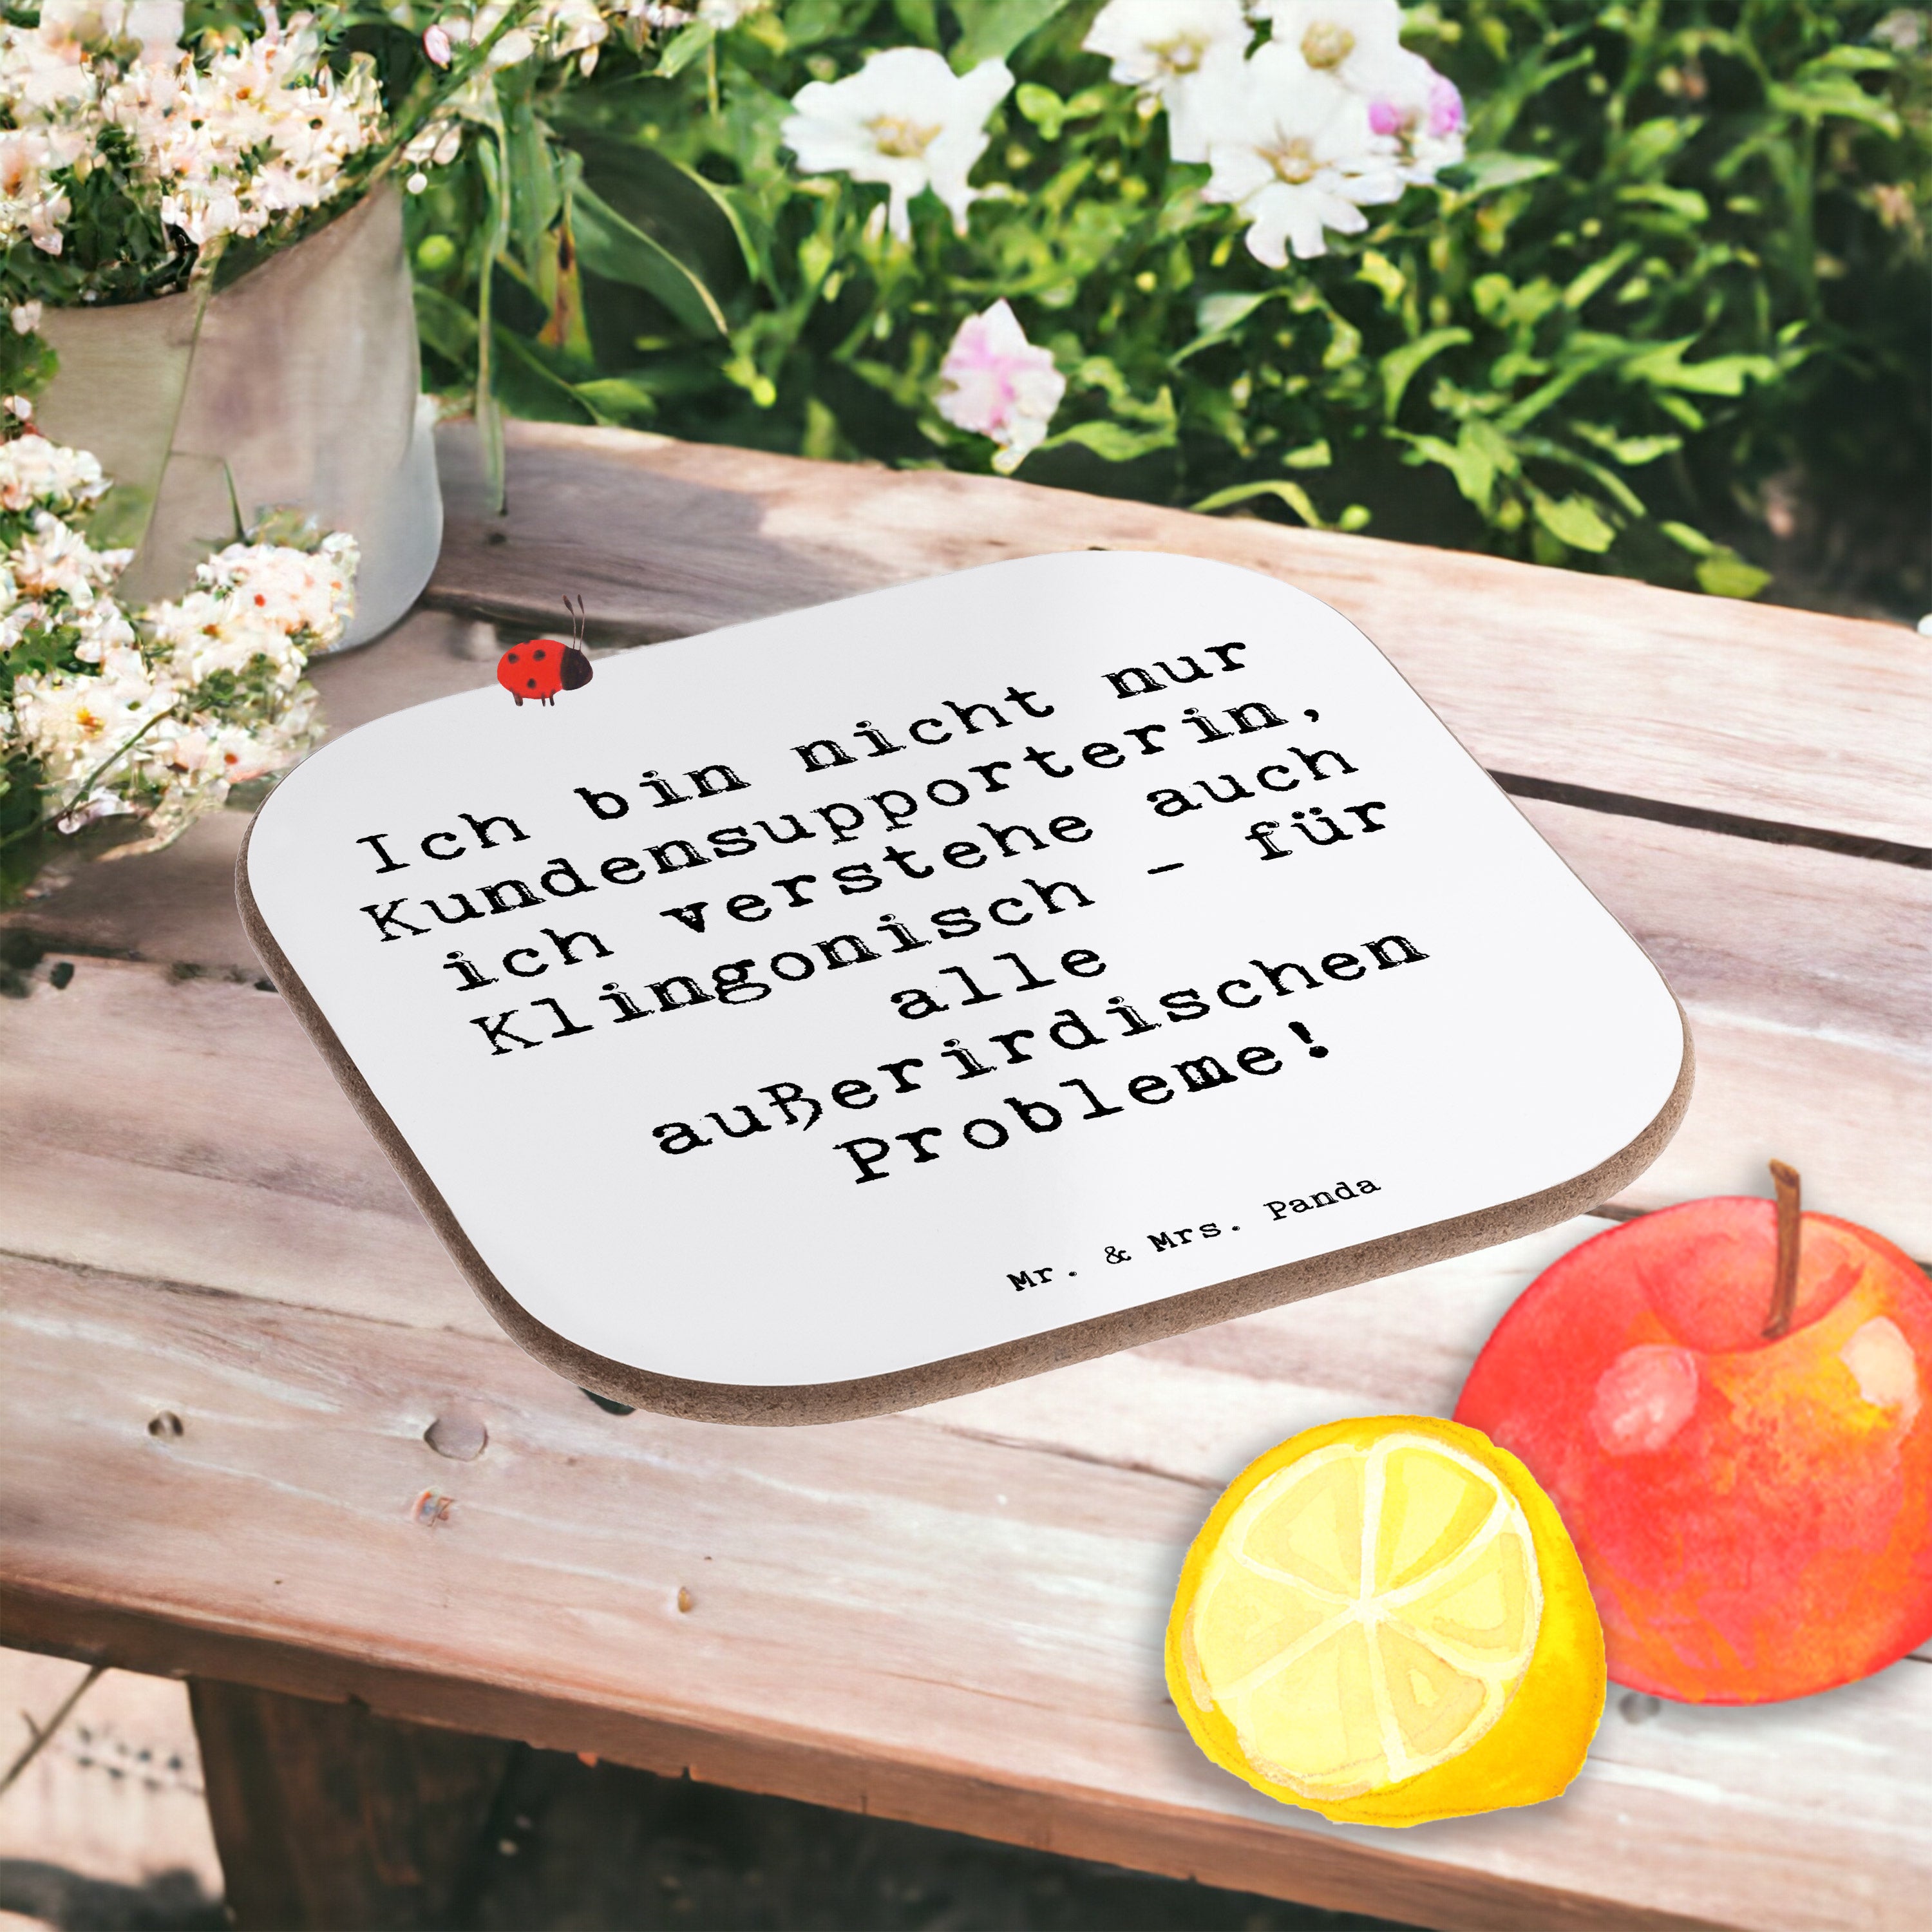 Ich bin nicht nur
Kundensupporterin,
ich verstehe auch
Klingonisch - für
alle
außerirdischen
Probleme!
Mr. & Mrs. Panda